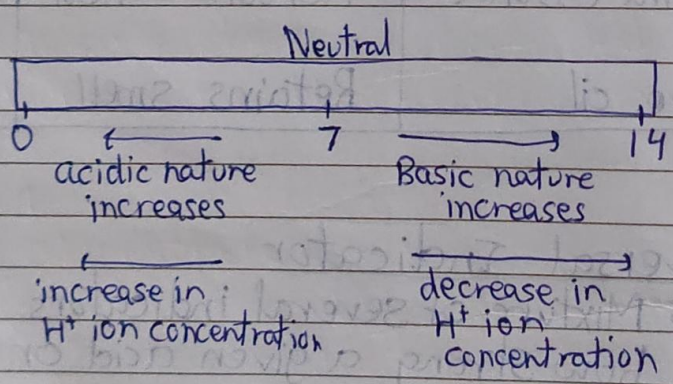 Neutral
0 7 14
acidic nature
increases
Basic nature
increases
increase in
H⁺ ion concentration
decrease in
H⁺ ion
concentration